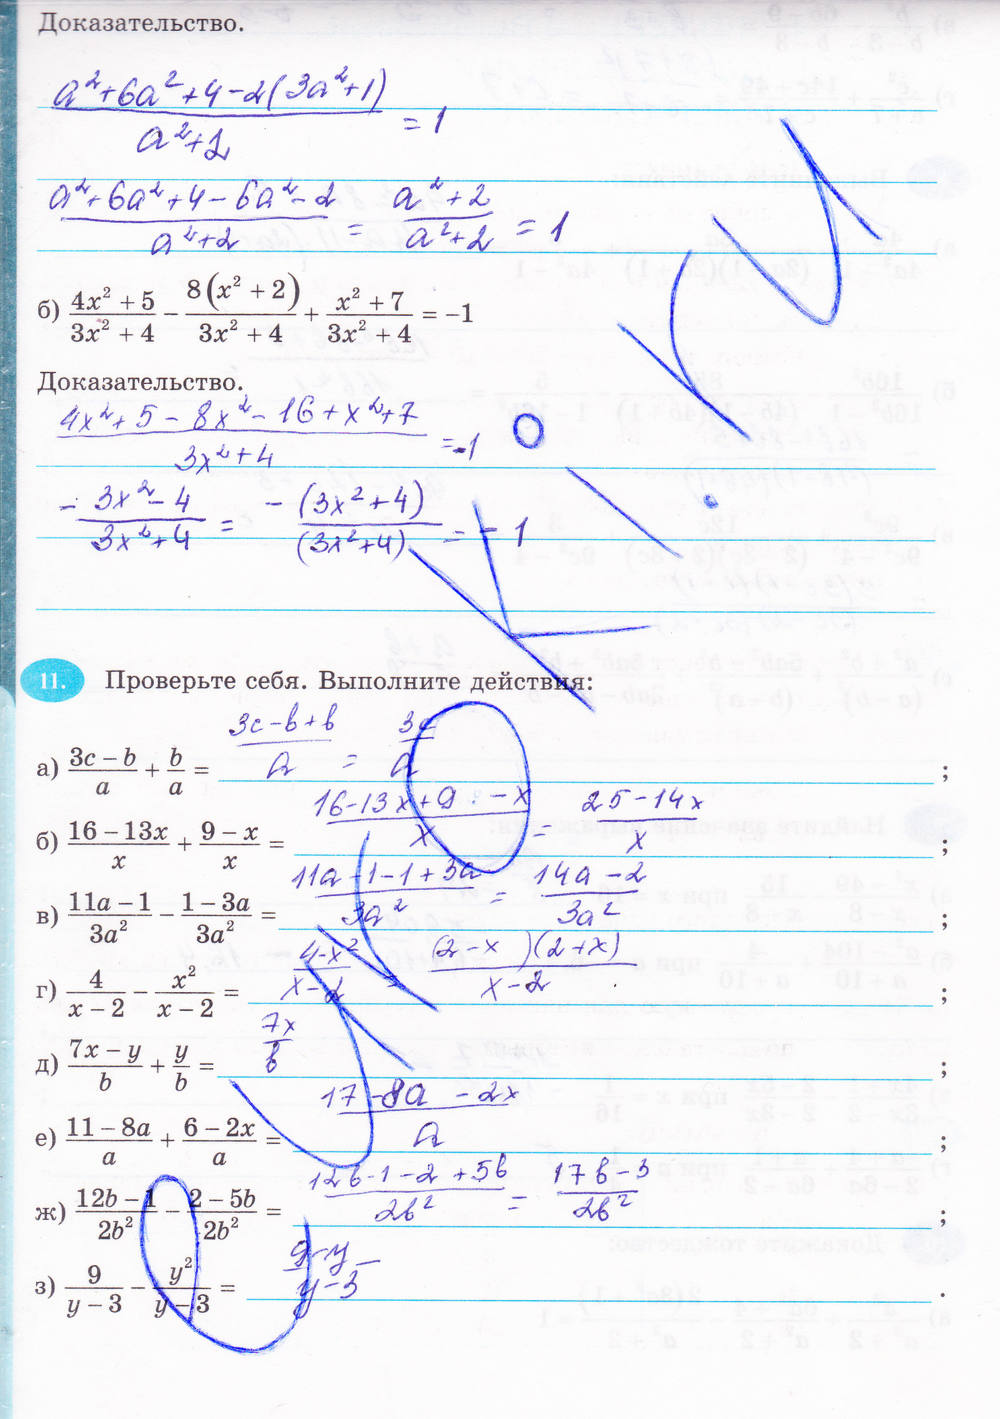 Доказательство.
a²+6a²+4-2(3a²+1)/a²+2 = 1
a²+6a²+4-6a²-2/a²+2 = a²+2/a²+2 = 1
б) 4x² + 5/3x² + 4 − 8(x² + 2)/3x² + 4 + x² + 7/3x² + 4 = −1
Доказательство.
4x²+5-8x²-16+x²+7/3x²+4 = -1
- 3x²-4/3x²+4 = -(3x²+4)/(3x²+4) = -1
11. Проверьте себя. Выполните действия:
а) 3c − b/a + b/a = 3c-b+b/a = 3c/a ;
б) 16 − 13x/x + 9 − x/x = 16-13x+9-x/x = 25-14x/x ;
в) 11a − 1/3a² − 1 − 3a/3a² = 11a-1-1+3a/3a² = 14a-2/3a² ;
г) 4/x − 2 − x²/x − 2 = 4-x²/x-2 = (2-x)(2+x)/x-2 ;
д) 7x − y/b + y/b = 7x/b ;
е) 11 − 8a/a + 6 − 2x/a = 17-8a-2x/a ;
ж) 12b − 1/2b² − 2 − 5b/2b² = 12b-1-2+5b/2b² = 17b-3/2b² ;
з) 9/y − 3 − y²/y − 3 = 9-y/y-3 .